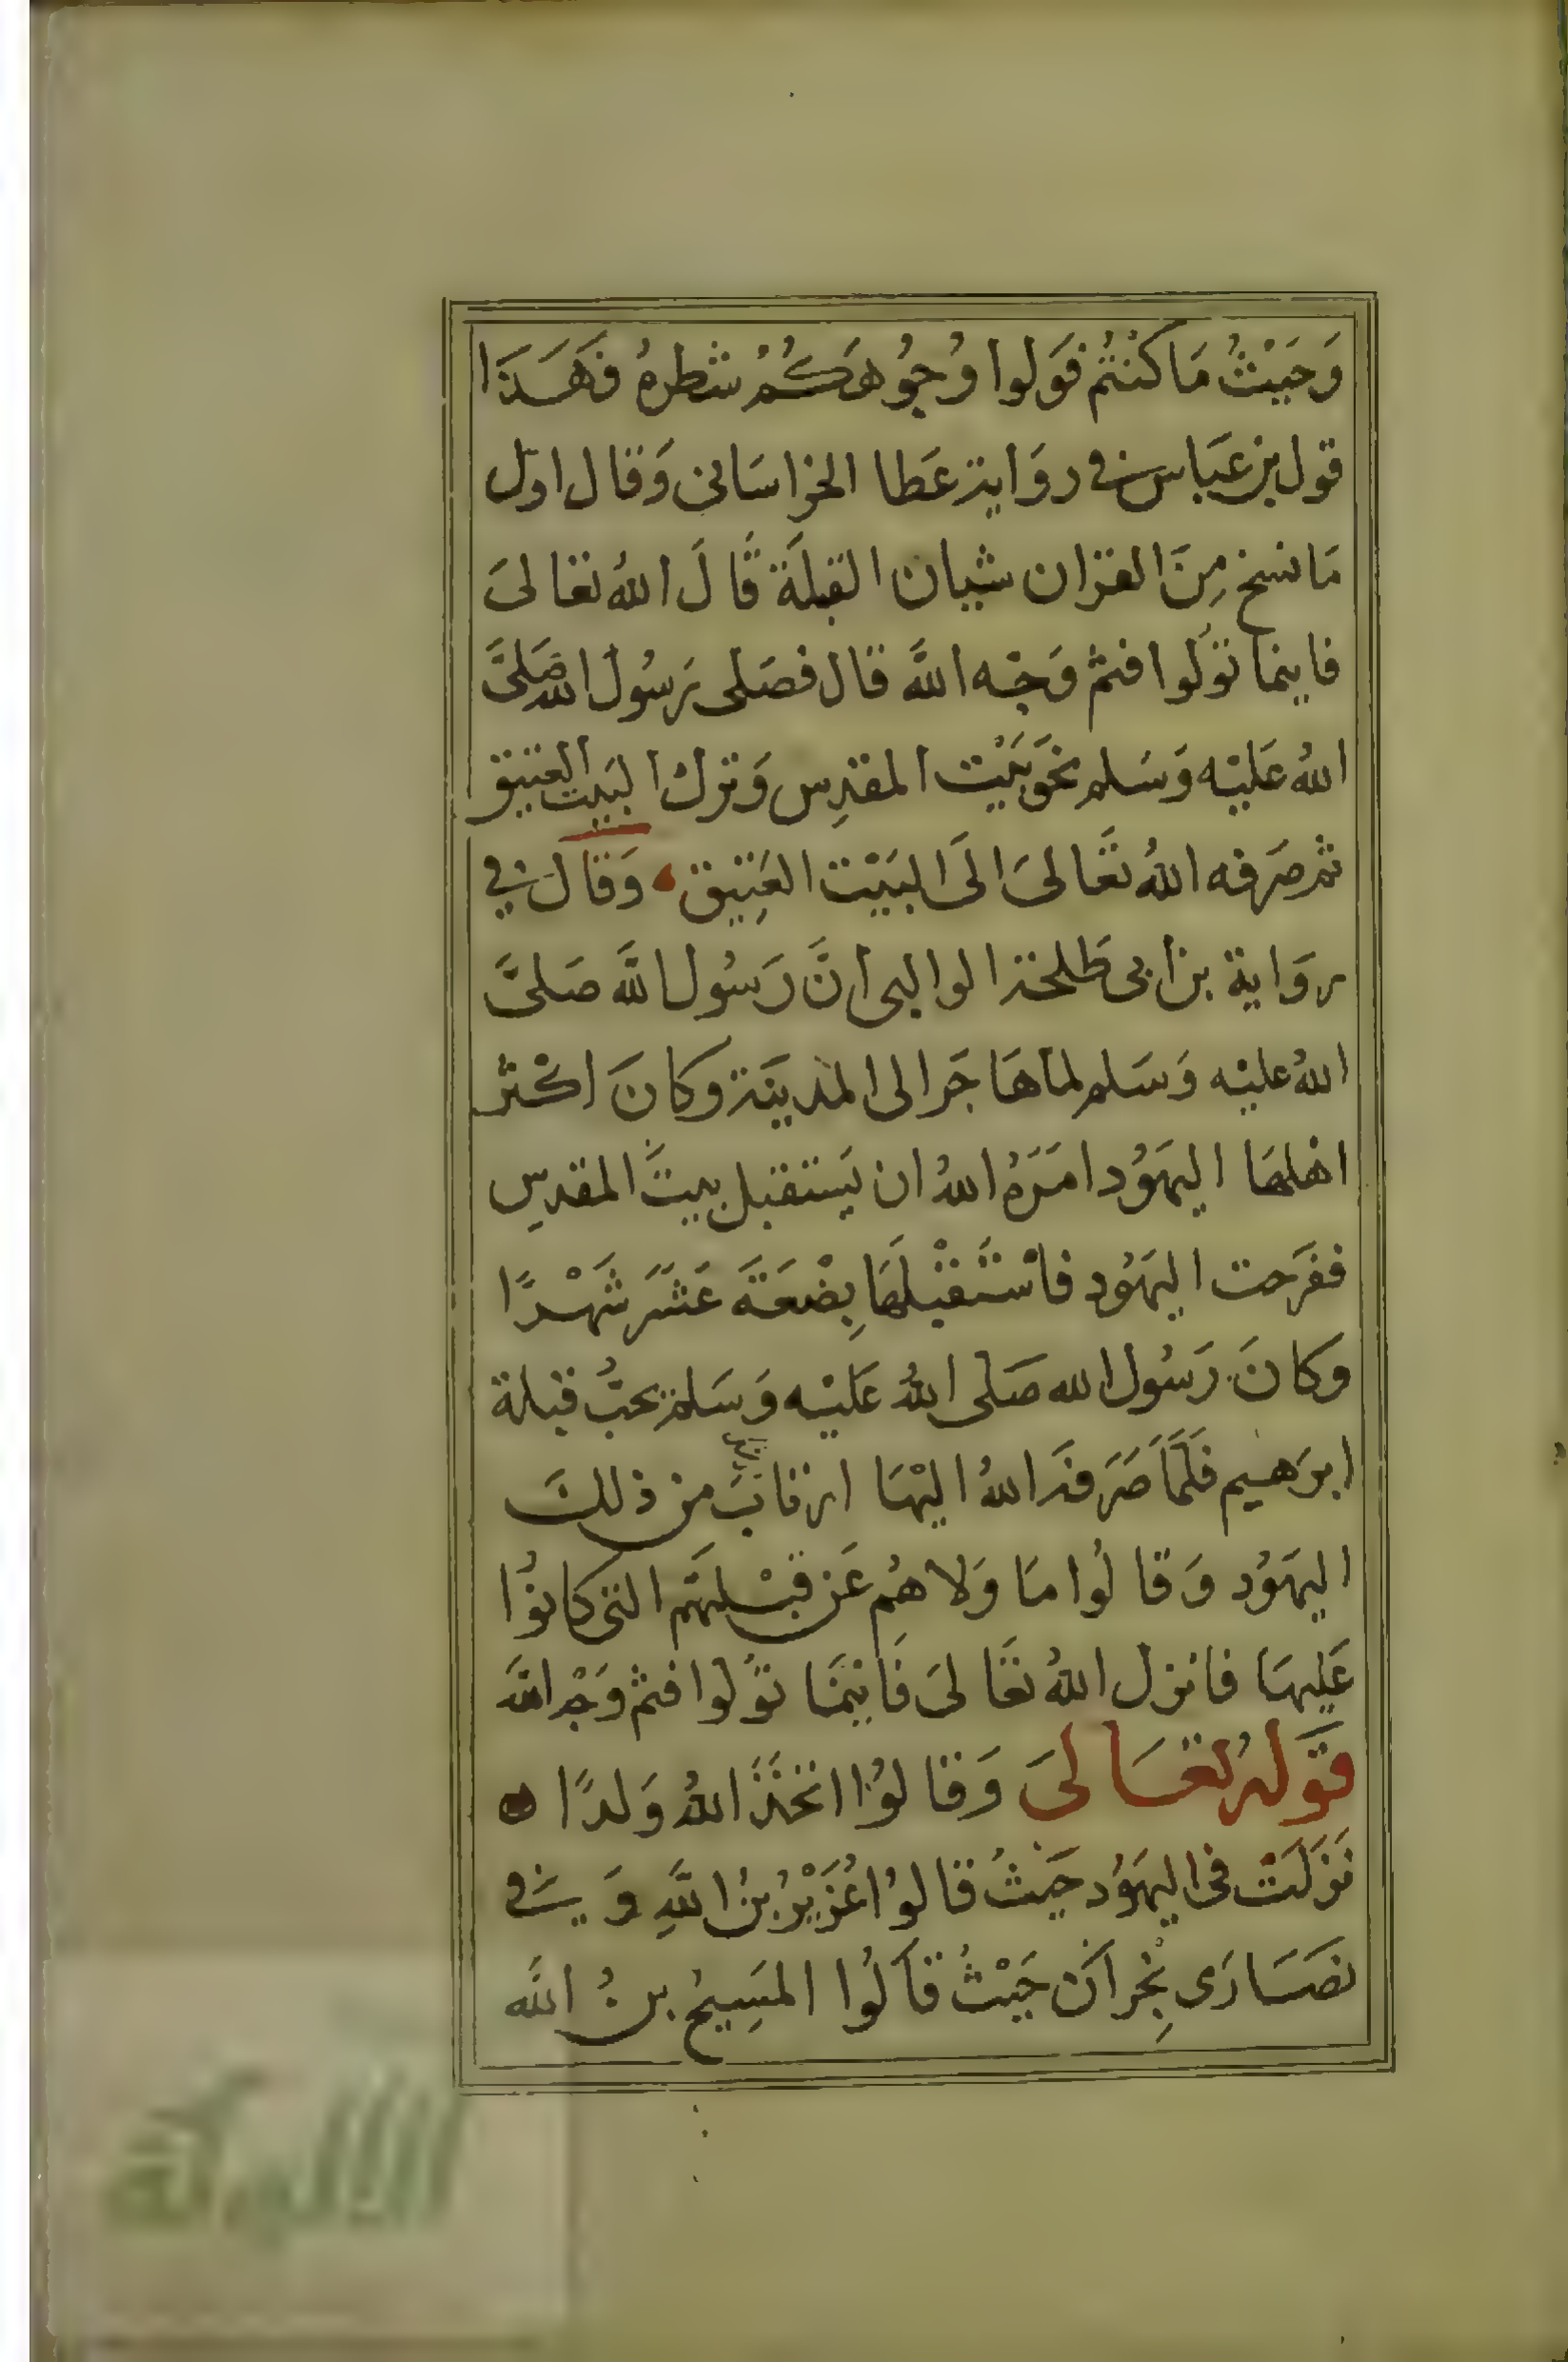 وَحَيْثُ مَا كُنْتُمْ فَوَلوا وُجُوُهَكُمْ شطرهُ فَهَذَا
قول بن عَبَاس في روَاية عَطا الخراسَانى وَقال اول
مَا نسخ مِنَ القران شيان القبلَة قَالَ اللهُ تعَالىَ
فاينما تَوَلُوا فثم وَجْه اللَّه قال فصَلى رَسُول الله صَلىَّ
اللهُ عَليْه وَسَلم نحوَ بَيْت المقدِس وَترك البَيت العتيق
ثم صَرفه اللهُ تعَالىَ الَى البَيْت العَتِيق وَقال في
روَاية بن ابى طَلحة الوالبى انَّ رَسُول اللَّه صَلىَّ
اللهُ عليْه وَسَلم لما هَاجَر الى المدينَة وكانَ اكْثر
اهلهَا اليهَوُد امَرَهُ اللهُ ان يَستقبل بيتَ المقدسِ
ففَرَحت اليهَوُد فاسْتَقْبلَهَا بِضْعَةَ عَشَرَ شَهْرًا
وَكانَ رَسُول الله صَلى اللهُ عَليْه وَسَلم يحبُّ قبلة
ابرَهيم فَلَمَّا صَرَفهَ اللهُ اليْهَا ارتابَ من ذلكَ
اليهَوُد وَقالُوا مَا وَلاهُم عَن قبْلتهَم التى كانوُا
عَليهَا فانزل اللهُ تعَالىَ فَاينمَا تَوَلُوا فثم وَجْه اللَّه
قوَلهُ تعَالىَ وَقالوُا اتخَذَ اللهُ وَلدًا
نَزَلَتْ فى اليهَوُد حَيثُ قالوُا عُزَيْرُ بنُ اللَّهِ وَفي
نصَارَى نِجرَان حَيْثُ قاَلُوا المسَيِحُ بنُ اللَّه
الألوكة